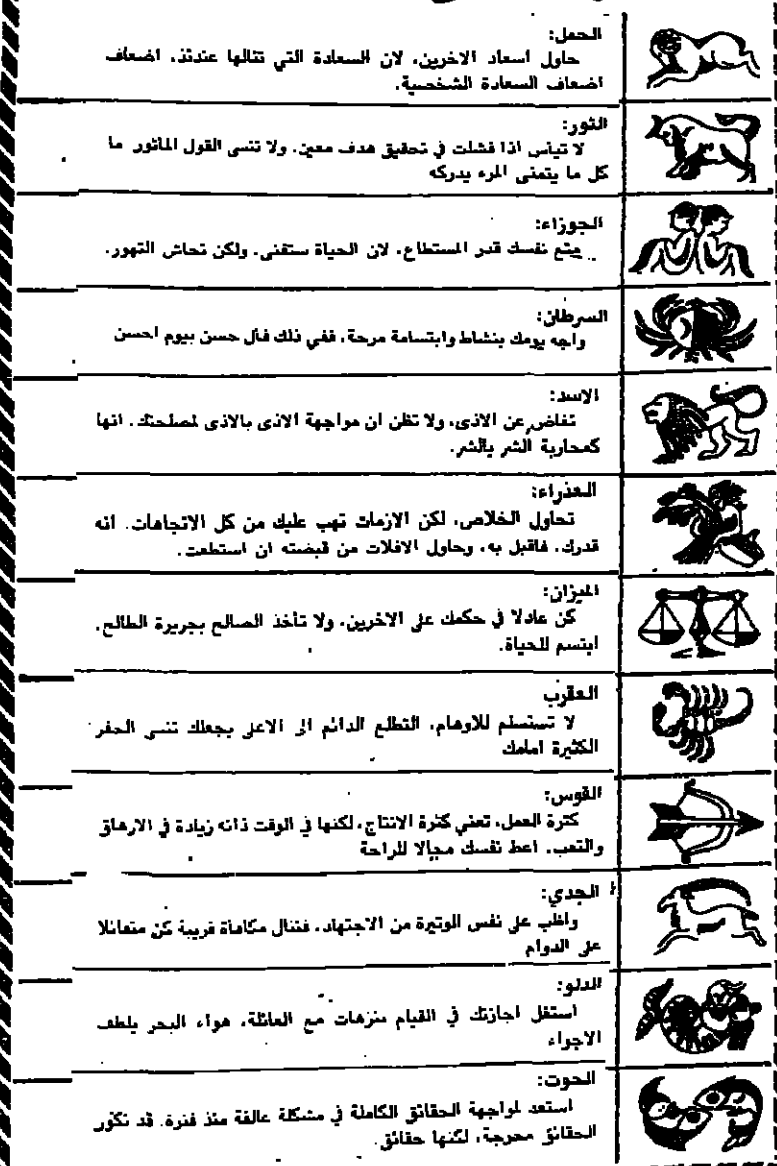 الحمل:
حاول اسعاد الاخرين، لان السعادة التي تنالها عندئذ، اضعاف
اضعاف السعادة الشخصية.
الثور:
لا تيأس اذا فشلت في تحقيق هدف معين. ولا تنسى القول المأثور ما
كل ما يتمنى المرء يدركه
الجوزاء:
متع نفسك قدر المستطاع، لان الحياة ستفنى. ولكن تحاش التهور.
السرطان:
واجه يومك بنشاط وابتسامة مرحة، ففي ذلك فأل حسن بيوم احسن
الاسد:
تغاض عن الاذى، ولا تظن ان مواجهة الاذى بالاذى لمصلحتك. انها
كمحاربة الشر بالشر.
العذراء:
تحاول الخلاص، لكن الازمات تهب عليك من كل الاتجاهات. انه
قدرك، فاقبل به، وحاول الافلات من قبضته ان استطعت.
الميزان:
كن عادلا في حكمك على الاخرين، ولا تأخذ الصالح بجريرة الطالح.
ابتسم للحياة.
العقرب
لا تستسلم للاوهام، التطلع الدائم الى الاعلى يجعلك تنسى الحفر
الكثيرة امامك
القوس:
كثرة العمل، تعني كثرة الانتاج، لكنها في الوقت ذاته زيادة في الارهاق
والتعب. اعط نفسك مجالا للراحة
الجدي:
واظب على نفس الوتيرة من الاجتهاد، فتنال مكافأة قريبة كن متفائلا
على الدوام
الدلو:
استغل اجازتك في القيام بنزهات مع العائلة، هواء البحر يلطف
الاجواء
الحوت:
استعد لمواجهة الحقائق الكاملة في مشكلة عالقة منذ فترة. قد تكون
الحقائق محرجة، لكنها حقائق.